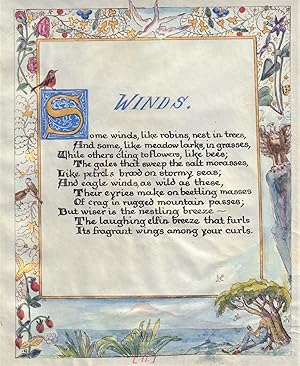 WINDS.
Some winds, like robins, nest in trees,
And some, like meadow larks, in grasses,
While others cling to flowers, like bees;
The gales that sweep the salt morasses,
Like petrels brood on stormy seas;
And eagle winds, as wild as these,
Their eyries make on beetling masses
Of crag in rugged mountain passes;
But wiser is the nestling breeze —
The laughing elfin breeze that furls
Its fragrant wings among your curls.